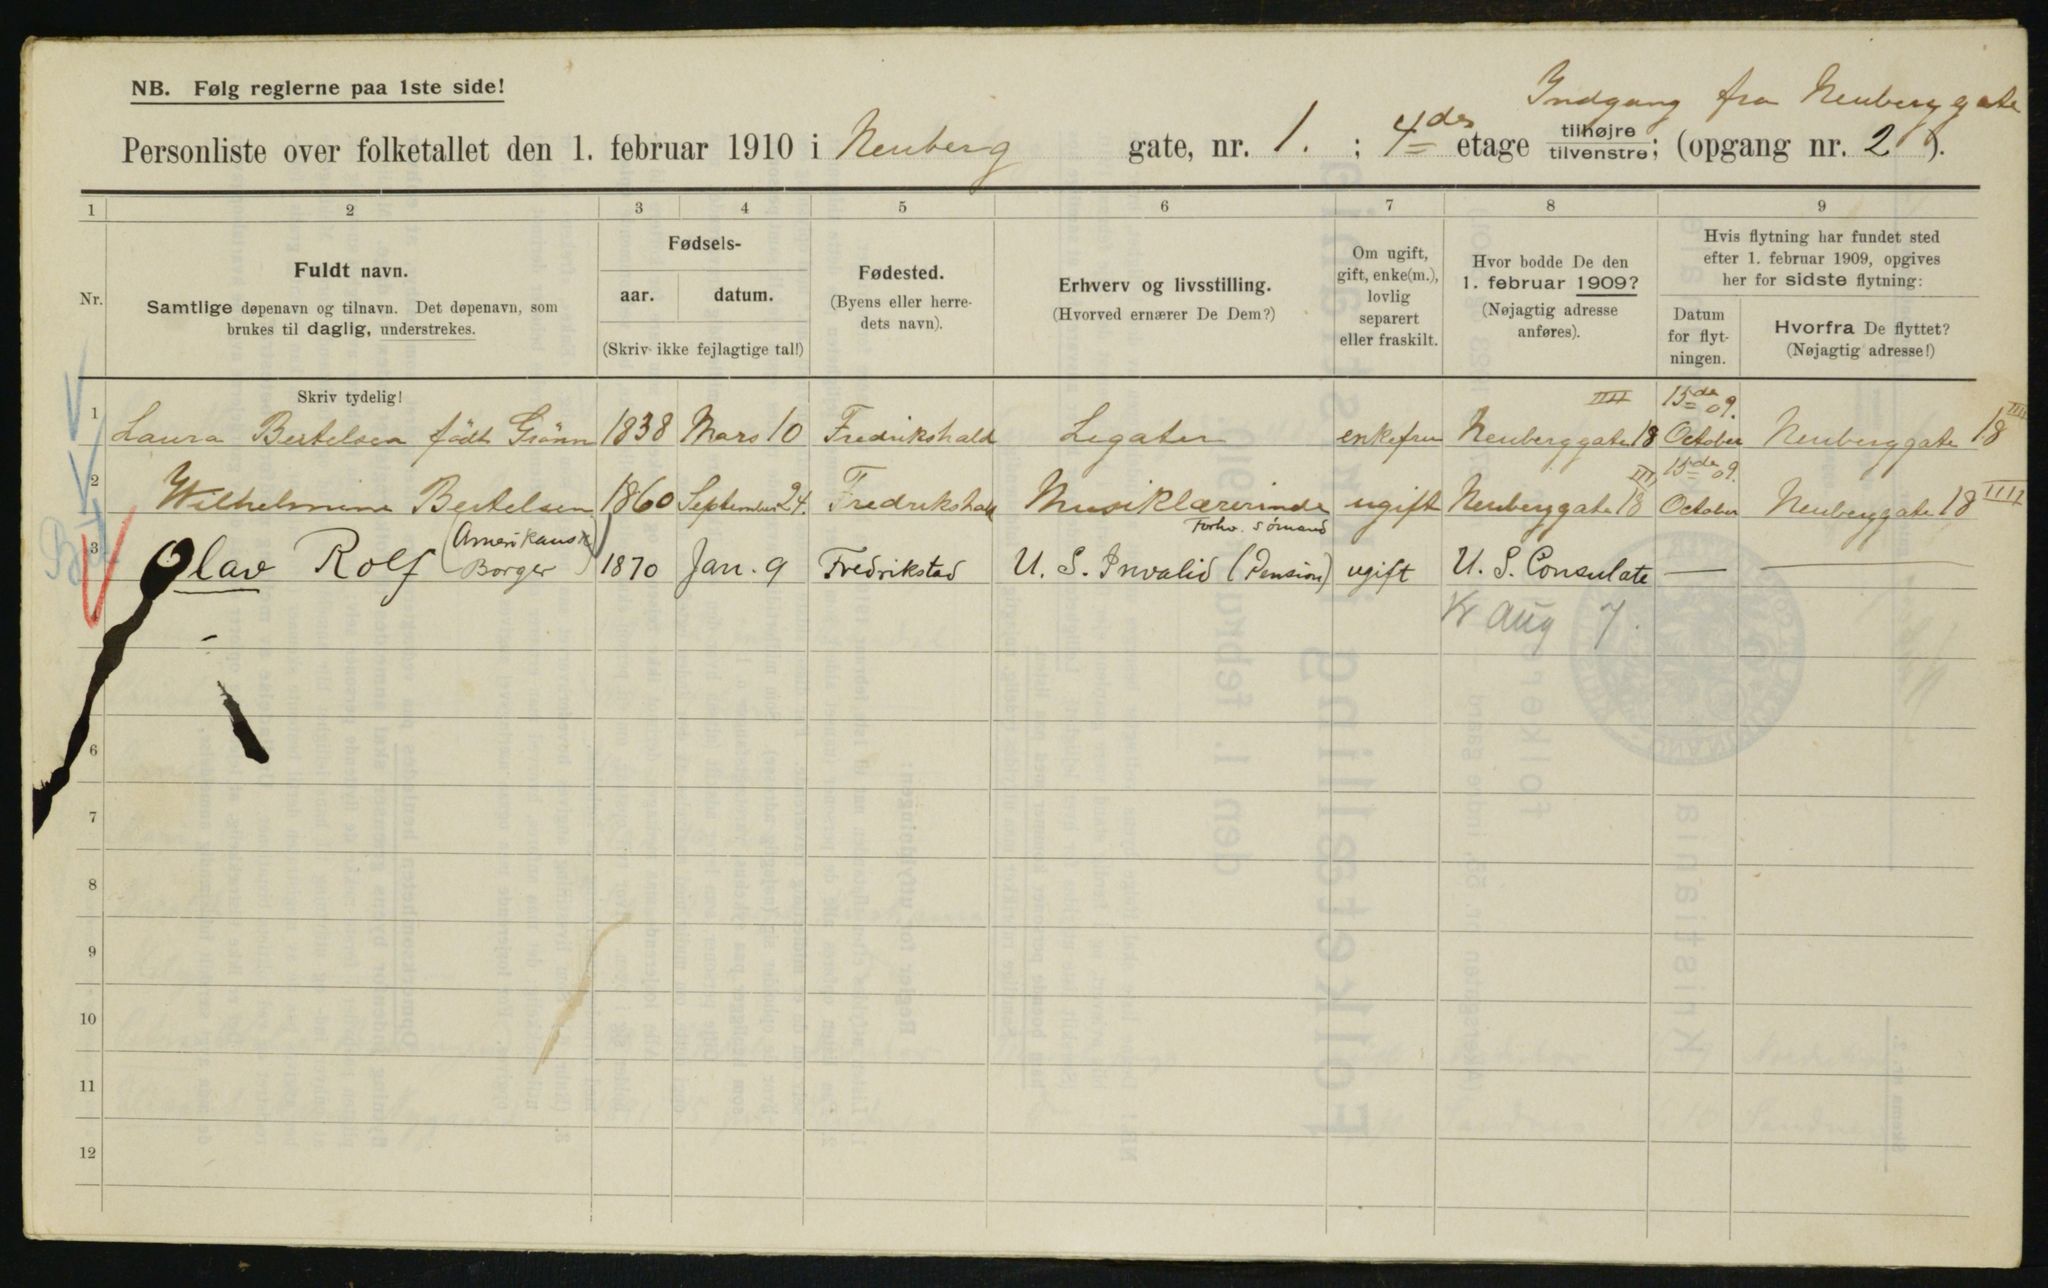 NB. Følg reglerne paa 1ste side!
Indgang fra Neuberggate
Personliste over folketallet den 1. februar 1910 i Neuberg gate, nr. 1. ; 4de etage tilhøjre tilvenstre; (opgang nr. 2 ).
1 2 3 4 5 6 7 8 9
Nr.
Fuldt navn.
Samtlige døpenavn og tilnavn. Det døpenavn, som
brukes til daglig, understrekes.
Skriv tydelig!
Fødsels-
aar. datum.
(Skriv ikke fejlagtige tal!)
Fødested.
(Byens eller herre-
dets navn).
Erhverv og livsstilling.
(Hvorved ernærer De Dem?)
Om ugift,
gift, enke(m.),
lovlig
separert
eller fraskilt.
Hvor bodde De den
1. februar 1909?
(Nøjagtig adresse
anføres).
Hvis flytning har fundet sted
efter 1. februar 1909, opgives
her for sidste flytning:
Datum
for flyt-
ningen.
Hvorfra De flyttet?
(Nøjagtig adresse!)
1 Laura Bertelsen födt Grönn 1838 Mars 10 Fredrikshald Legater enkefru Neuberggate 18 IIII 15de 09. October Neuberggate 18 IIII
2 Wilhelmine Bertelsen 1860 September 24. Fredrikshald Musiklærerinde ugift Neuberggate 18 III 15de 09. October Neuberggate 18 IIII
3 Olav Rolf (Amerikansk Borger) 1870 Jan. 9 Fredrikstad Forhv. Sømand U. S. Invalid (Pension) ugift U. S. Consulate — —
Kr Aug 7.
6
7
8
9
10
11
12